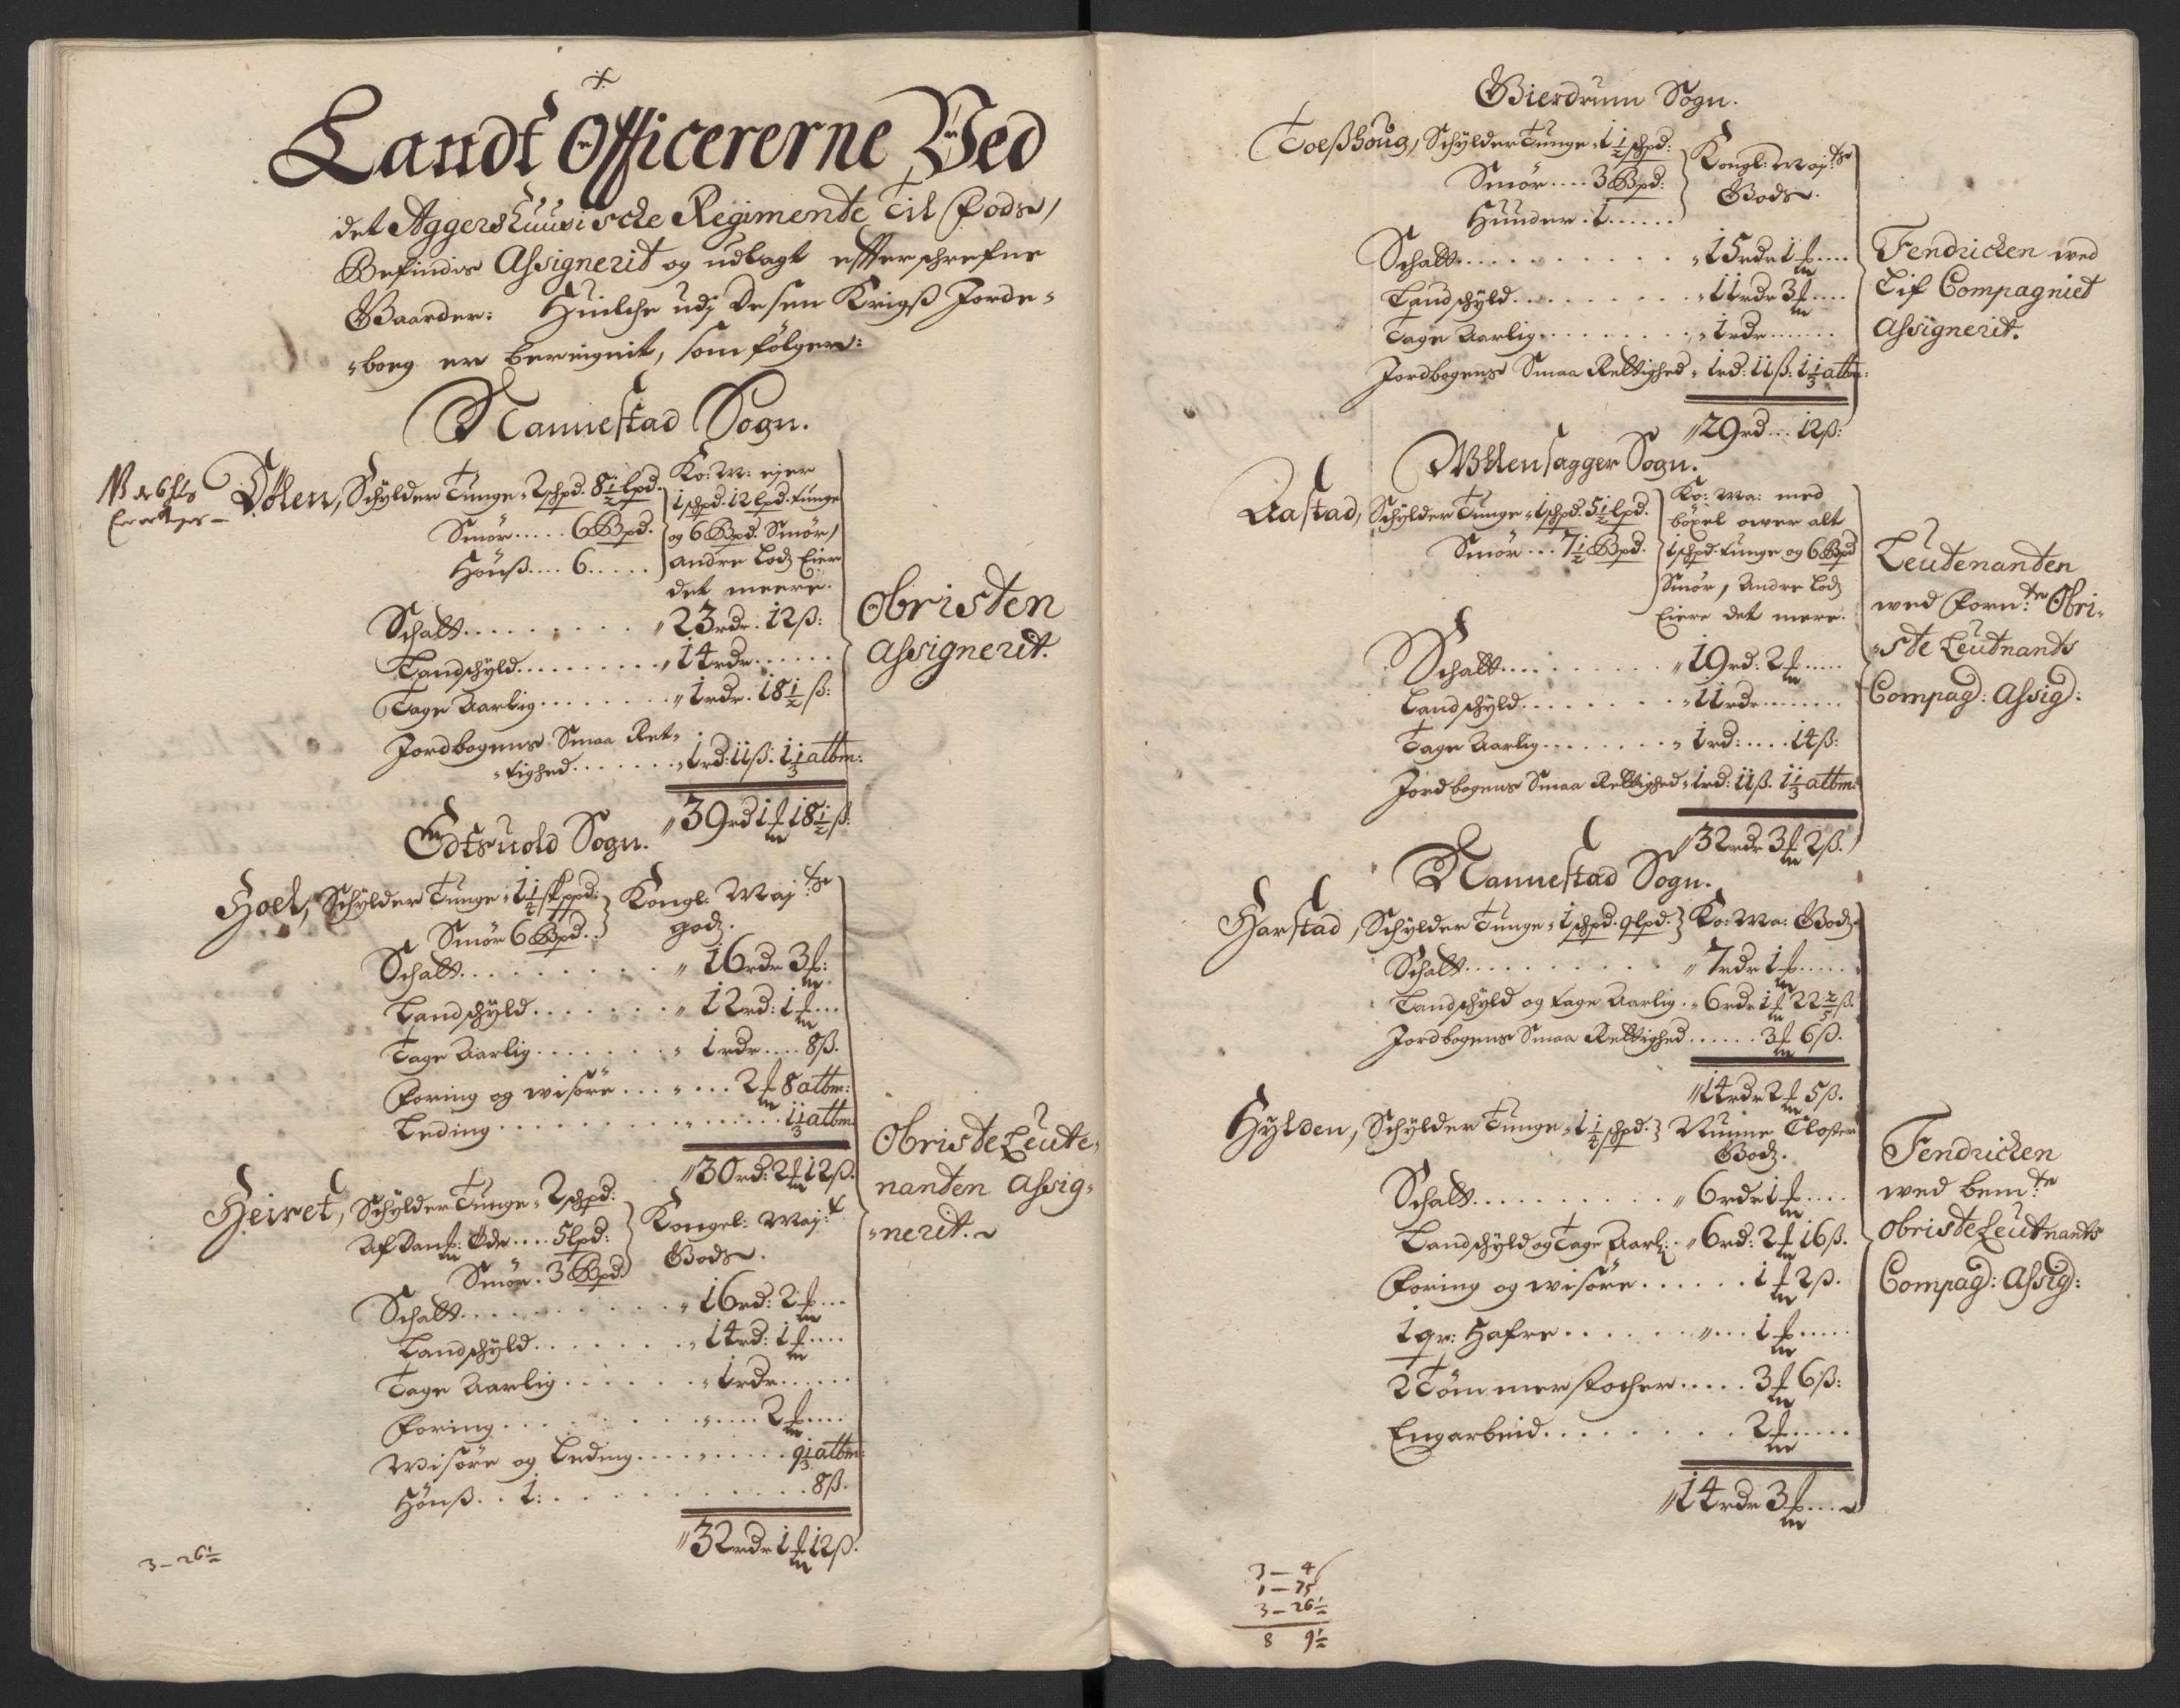 Landt Officererne Ved
det Aggershuusische Regimente Til Fods,
Befindis Assignerit og udlagt effterschrefne
Gaarder: Huilche udj Desen Krigß Jorde-
-bog er beregnit, som følger:
Nannestad Sogn.
Dölen, Schylder Tunge 2 schpd. 8½ lpd.
Smör..... 6 Bpd.
Hönß.... 6.....
Ko: M: ejer
1 schpd. 12 lpd. tunge
og 6 Bpd. Smör,
Andre Lodz Eier
det meere.
Schatt.......... 23 rdr. 12 ß:
Landschyld.......... 14 rdr......
Tage Aarlig........ 1 rdr. 18½ ß:
Jordbogens Smaa Ret-
-tighed....... 1 rd: 11 ß: 1⅓ alb:
39 rd 1 ort 18½ ß:
Obristen
Assignerit.
Edtsuold Sogn.
Hoel, Schylder Tunge 1¼ skppd:
Smör 6 Bpd..
Kongl: Maj:ts
godz.
Schatt.......... 16 rdr 3 ort:
Landschyld....... 12 rd: 1 ort...
Tage Aarlig....... 1 rdr.... 8 ß.
Foring og wisöre....... 2 ort 8 alb:
Leding............... 1⅓ alb
30 rd: 2 ort 12 ß.
Heiret, Schylder Tunge 2 schpd:
Öde.... 5 lpd:
Smör. 3 Bpd.
Kongel: Maj:t
Gods.
Schatt.......... 16 rd: 2 ort...
Landschyld....... 14 rd: 1 ort....
Tage Aarlig...... 1 rdr......
Foring............ 2 ort....
Wisöre og Leding......... 9⅓ alb:
Hönß.. 1:........... 8 ß.
32 rdr 1 ort 12 ß.
Obriste Leute-
nanten Assig-
-nerit.
3 - 26½
Gierdrum Sogn.
Toeßhoug, Schylder Tunge 1½ schpd:
Smör.... 3 Bpd:
Huuder. 1......
Kongl: Maj:ts
Gods.
Schatt.......... 15 rdr 1 ort....
Landschyld......... 11 rdr 3 ort....
Tage Aarlig........ 1 rdr......
Jordbogens Smaa Rettighed 1 rd: 11 ß: 1⅓ alb:
29 rd... 12 ß:
Fendrichen wed
Lif Compagniet
Assignerit.
Ullensagger Sogn.
Aastad, Schylder Tunge 1 schpd. 5½ lpd.
Smör... 7½ Bpd.
Ko: Ma: med
böxel ower alt
1 schpd. tunge og 6 Bpd
Smör, Andre Lodz
Eiere det mere.
Schatt.......... 19 rd: 2 ort.....
Landschyld........ 11 rdr.......
Tage Aarlig........ 1 rd:.... 14 ß:
Jordbogens Smaa Rettighed 1 rd: 11 ß. 1⅓ alb:
32 rdr 3 ort 2 ß.
Leutenanten
wed Forn:te Obri-
-ste Leutnants
Compag: Assig:
Nannestad Sogn.
Harstad, Schylder Tunge 1 schpd. 9 lpd. Ko: Ma: Godz
Schatt.......... 7 rdr 1 ort.....
Landschyld og tage Aarlig. 6 rdr 1 ort 22⅖ ß.
Jordbogens Smaa Rettighed...... 3 ort 6 ß.
14 rdr 2 ort 5 ß.
Hylden, Schylder Tunge 1¼ schpd. Nunne Closter
Godz.
Schatt.......... 6 rdr 1 ort....
Landschyld og Tage Aarl: 6 rd: 2 ort 16 ß.
Foring og wisöre...... 1 ort 2 ß.
1 qr: Hafre......... 1 ort.....
2 Tömmerstocher..... 3 ort 6 ß:
Engarbeid......... 2 ort.....
14 rdr 3 ort...
Fendrichen
wed bem:te
Obriste Leutnants
Compag: Assig:
3 - 4
1 - 75
3 - 26½
8 9½